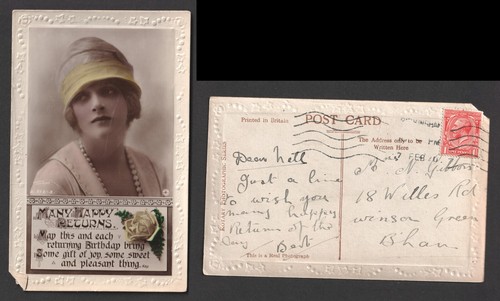 MANY HAPPY
RETURNS.
May this and each
returning Birthday bring
Some gift of joy, some sweet
and pleasant thing.
Printed in Britain
POST CARD
The Address only to be
Written Here
FEB
Dear Nell
Just a line
to wish you
many happy
Returns of the
Day
Bert
This is a Real Photograph
18 Willes Rd
Winson Green
B'ham